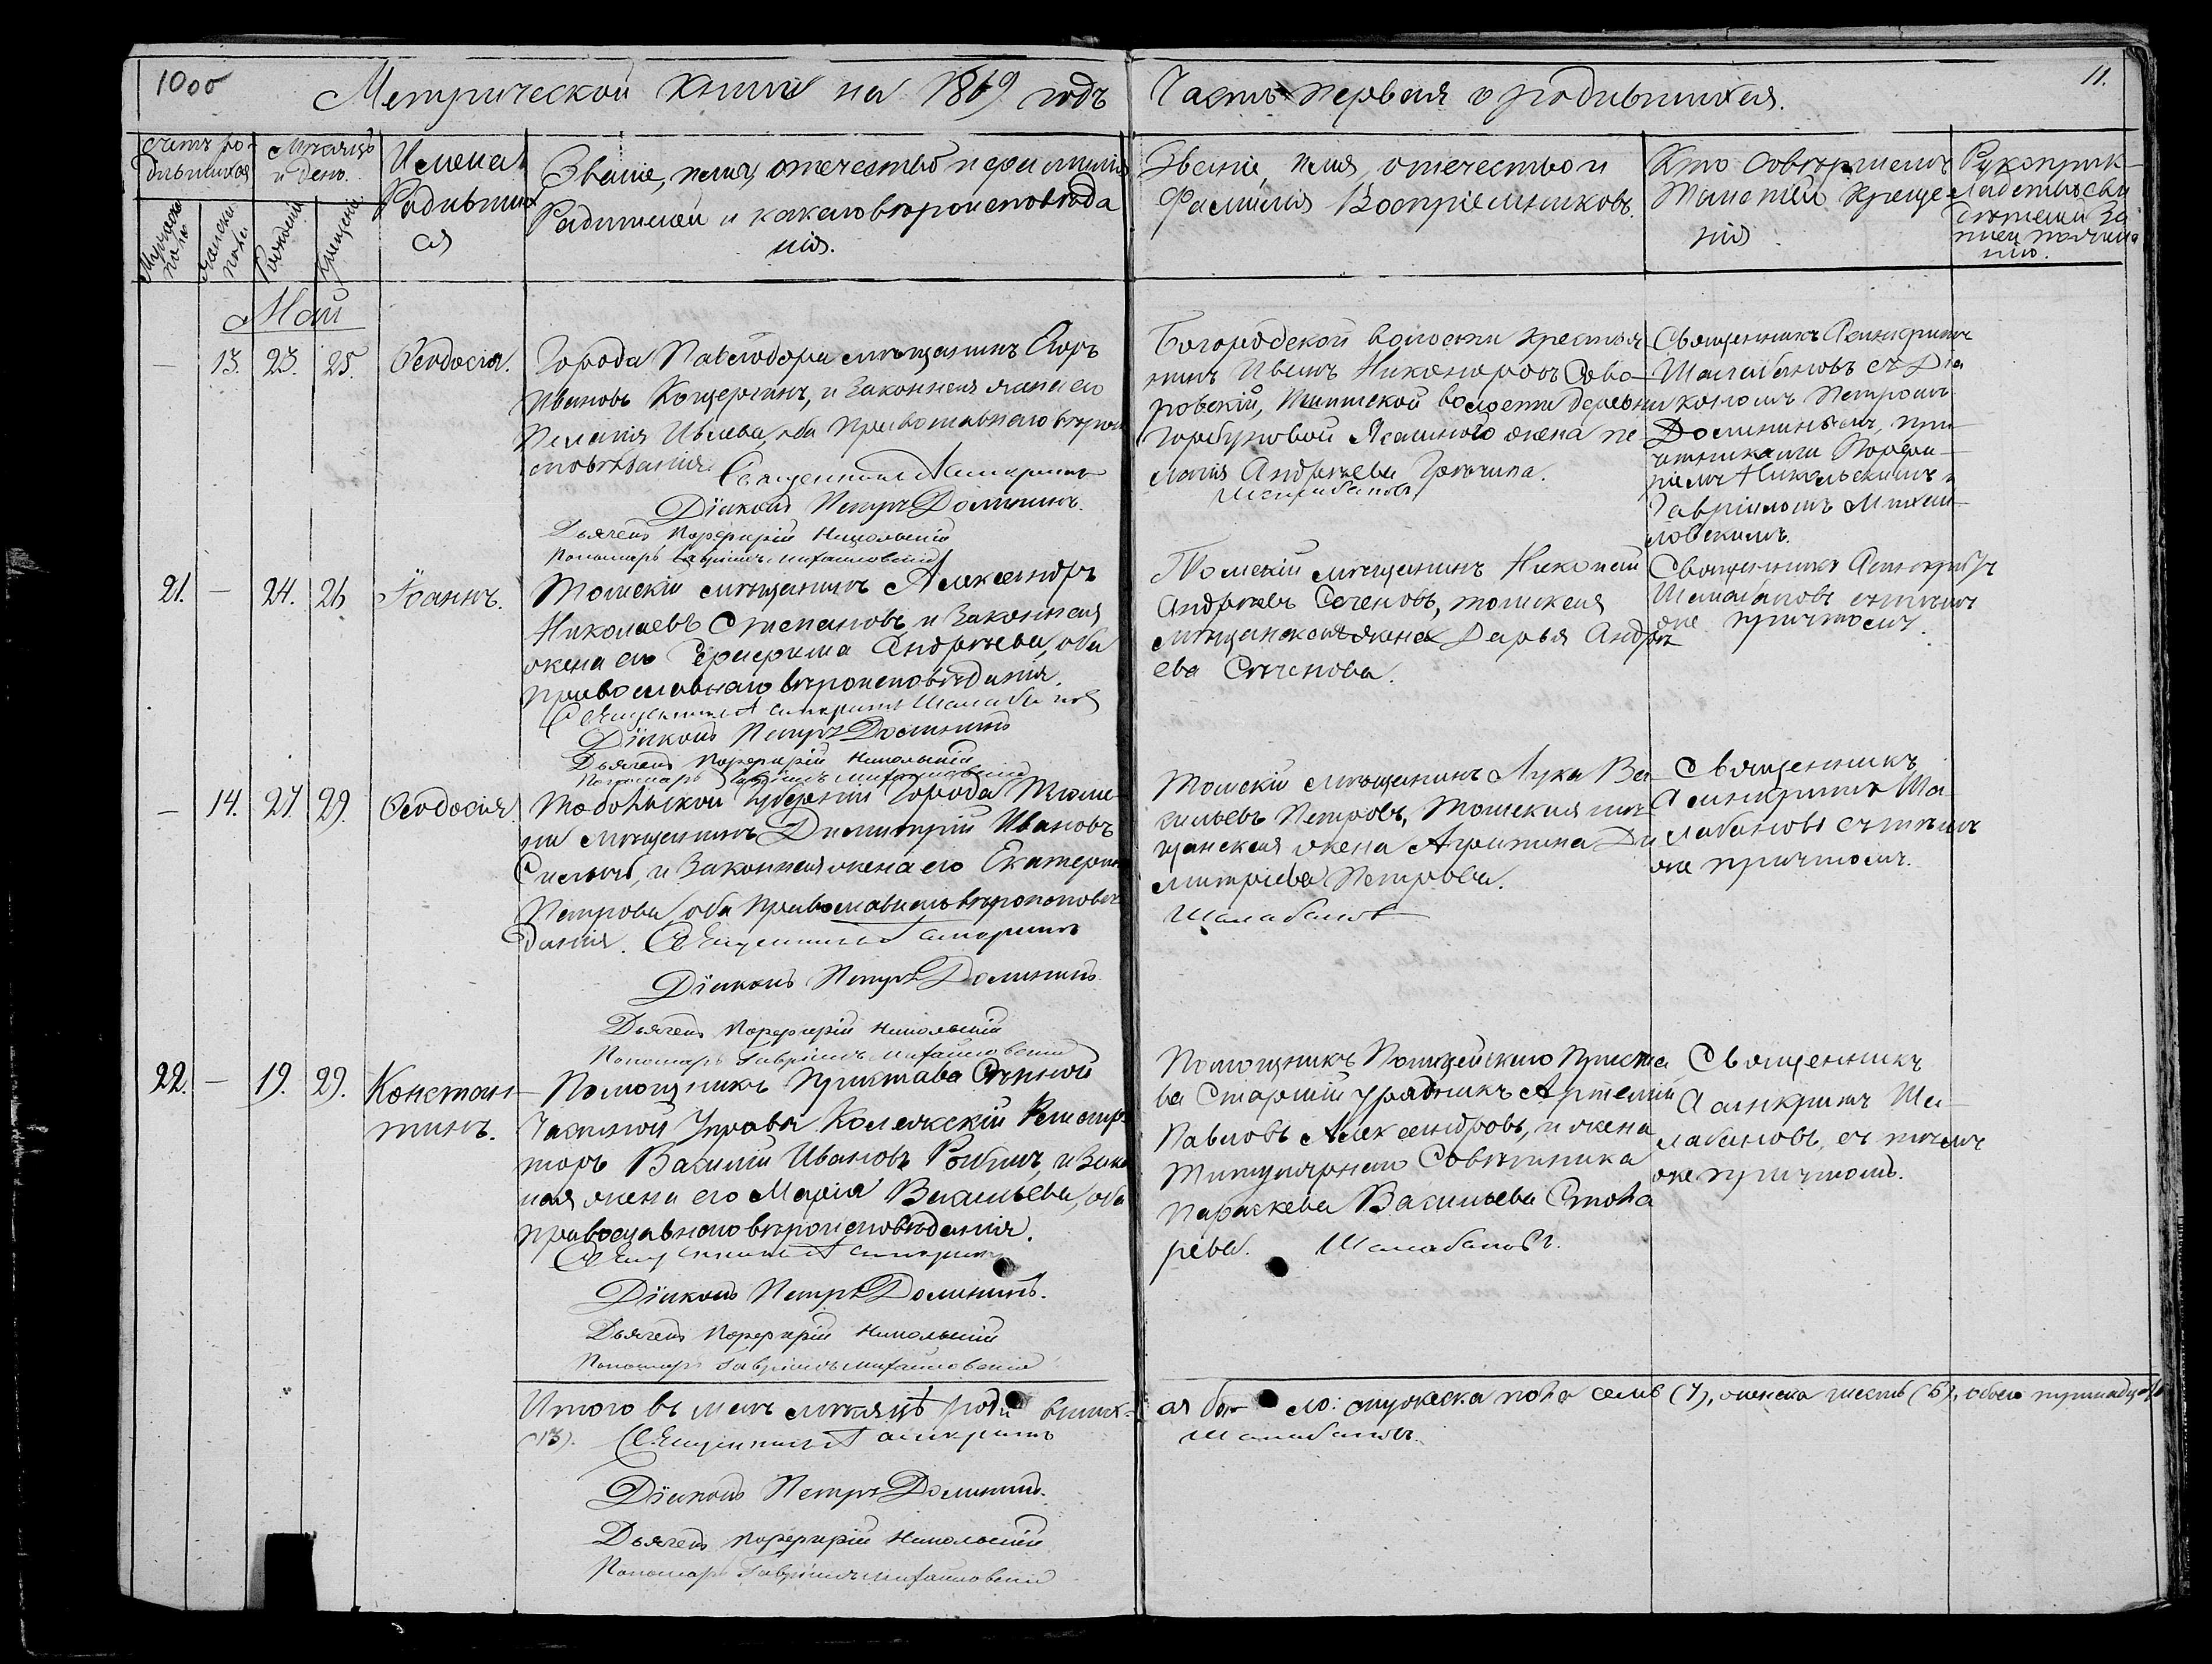 1000
Метрической книги на 1869 годъ
Часть первая о родившихся.
11.
Счетъ ро-
дившихся
Мужеска
пола
Женска
пола
Мѣсяцъ
и день.
Рожденія
Крещенія
Имена
Родивших
ся
Званіе, имя, отечество и фамилія
Родителей и какого вѣроисповѣда
нія.
Званіе, имя, отечество и
Фамилія Воспріемниковъ.
Кто совершалъ
Таинство Креще
нія
Рукоприк-
ладство сви
дѣтелей за
писи по жела
нію.
Май
— 13. 23. 25. Ѳеодосія.
Города Павлодара мѣщанинъ Егоръ
Ивановъ Кощергинъ, и законная жена его
Пелагія Ивлева, оба православнаго вѣроис
повѣданія.
Священникъ Асинкритъ
Діаконъ Петръ Доминивъ.
Дьячекъ Порфирій Никольскій
Пономарь Гавріилъ Михайловскій
Богородской волости крестья
нинъ Иванъ Никаноровъ Сово-
ровскій, волости деревни
Горбуновой жена Пе-
лагія Андреева
Шалабановъ
Священникъ Асинкритъ
Шалабановъ съ Діа
кономъ Петромъ
Доминивымъ, при-
четниками Порфи-
ріемъ Никольскимъ и
Гавріиломъ Михай-
ловскимъ.
21. — 24. 26 Іоаннъ.
Томскій мѣщанинъ Александръ
Николаевъ Степановъ и законная
жена его Андреева, оба
православнаго вѣроисповѣданія.
Священникъ Асинкритъ Шалабановъ
Діаконъ Петръ Доминивъ
Дьячекъ Порфирій Никольскій
Пономарь Гавріилъ Михайловскій
Томскій мѣщанинъ Николай
Андреевъ Сеченовъ, томская
мѣщанская жена Дарья Андре
ева Сеченова.
Священникъ Асинкритъ
Шалабановъ съ тѣмъ
же причтомъ.
— 14. 27. 29. Ѳеодосія.
Тобольской Губерніи Города Тюме-
ни мѣщанинъ Димитрій Ивановъ
и законная жена его Екатерина
Петрова, оба православнаго вѣроисповѣ
данія. Священникъ Асинкритъ
Діаконъ Петръ Доминивъ
Дьячекъ Порфирій Никольскій
Пономарь Гавріилъ Михайловскій
Томскій мѣщанинъ Лука Ва-
сильевъ Петровъ, Томская мѣ-
щанская жена Агрипина Ди
митріева Петрова.
Шалабановъ
Священникъ
Асинкритъ Ша-
лабановъ съ тѣмъ
же причтомъ.
22. — 19. 29. Констан-
тинъ.
Помощникъ Пристава Сѣнной
Частной Управы Коллежскій Регистра
торъ Василій Ивановъ и закон
ная жена его Марія Васильева, оба
православнаго вѣроисповѣданія.
Священникъ Асинкритъ
Діаконъ Петръ Доминивъ.
Дьячекъ Порфирій Никольскій
Пономарь Гавріилъ Михайловскій
Помощникъ Полицейскаго Приста
ва Старшій урядникъ Артемій
Павловъ Александровъ, и жена
Титулярнаго Совѣтника
Параскева Васильева Столя
рева. Шалабановъ.
Священникъ
Асинкритъ Ша-
лабановъ, съ тѣмъ
же причтомъ.
Итого въ маѣ мѣсяцѣ родивших-
ся было: мужеска пола семь (7), женска шесть (6), обоего тринадцать
(13). Священникъ Асинкритъ
Шалабановъ.
Діаконъ Петръ Доминивъ.
Дьячекъ Порфирій Никольскій
Пономарь Гавріилъ Михайловскій